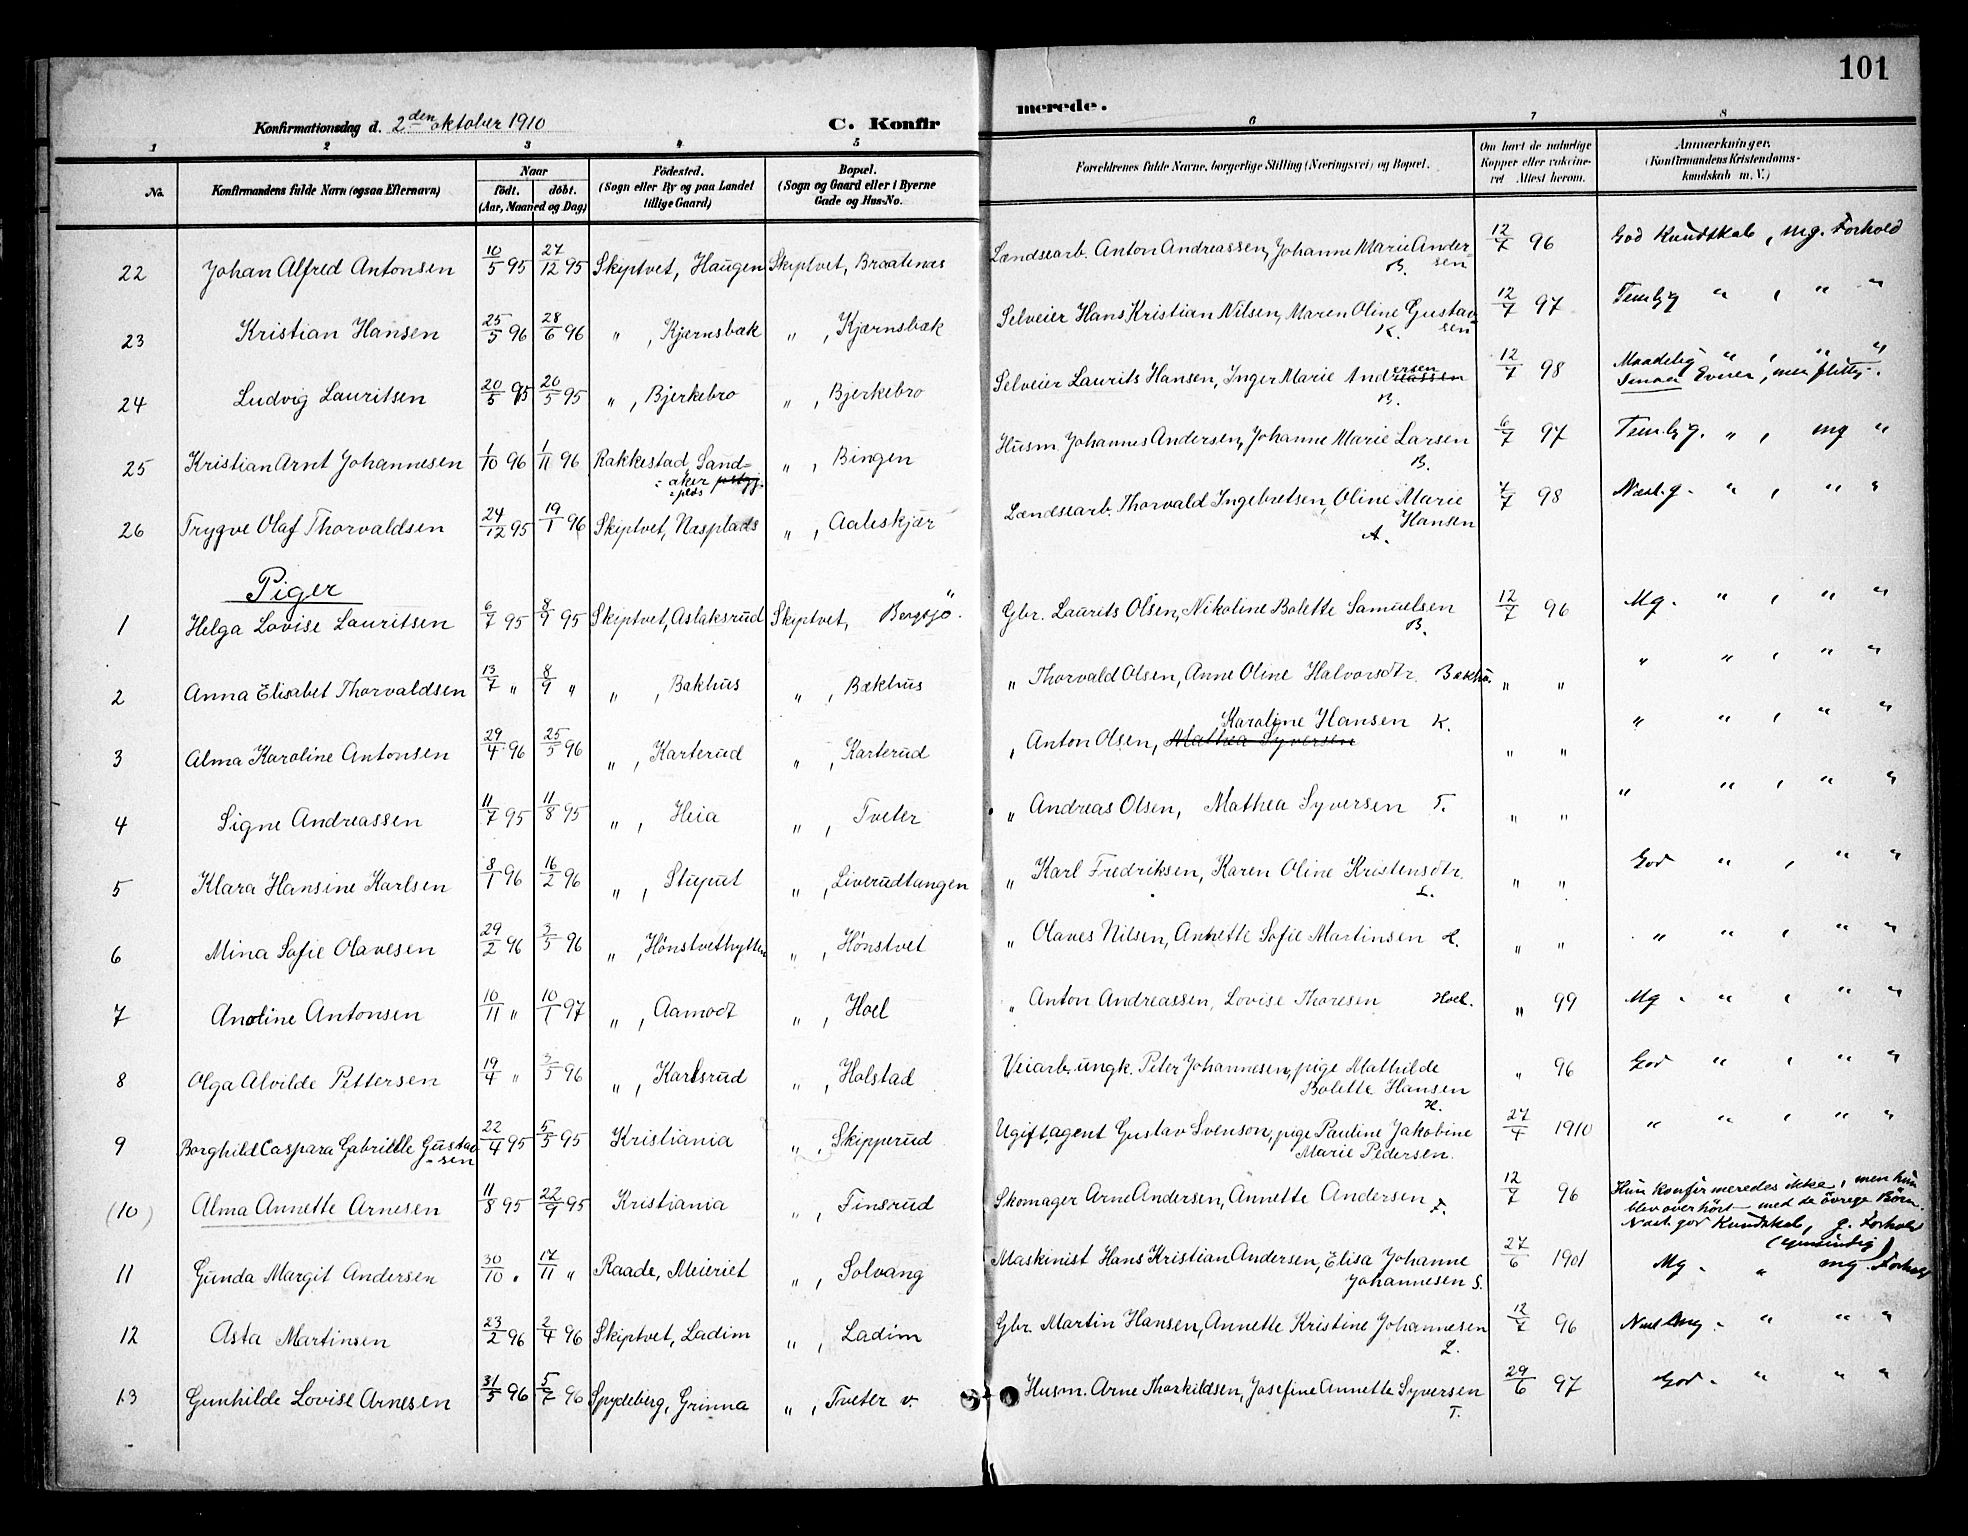 101
Konfirmationsdag d. 2den oktober 1910 C. Konfir merede.
1 2 3 4 5 6 7 8
No. Konfirmandens fulde Navn (ogsaa Efternavn) Naar født. døbt. (Aar, Maaned og Dag) Fødested. (Sogn eller By og paa Landet tillige Gaard) Bopæl. (Sogn og Gaard eller i Byerne Gade og Hus-No. Forældrenes fulde Navne, borgerlige Stilling (Næringsvei) og Bopæl. Om havt de naturlige Kopper eller vakcineret Attest herom. Anmærkninger. (Konfirmandens Kristendomskundskab m. V.)
22 Johan Alfred Antonsen 10/5 95 27/12 95 Skiptvet, Haugen Skiptvet, Braatenas Landsearb. Anton Andreassen, Johanne Marie Andersen B. 12/7 96 God Kundskab, mg. Forhold
23 Kristian Hansen 25/5 96 28/6 96 " , Kjærnsbæk " , Kjærnsbæk Selveier Hans Kristian Nilsen, Maren Oline Gustavsen K. 12/7 97 Temlig " , " "
24 Ludvig Lauritsen 20/5 95 20/5 95 " , Bjerkebro " , Bjerkebro Selveier Laurits Hansen, Inger Marie Andreassen ersen B. 12/7 98 Maadelig " , " " Smaa Evner, men flittig.
25 Kristian Arnt Johannesen 1/10 96 1/11 96 Rakkestad Sand=aker =plds " , Bingen Husm. Johannes Andersen, Johanne Marie Larsen B. 6/7 97 Tem.lig. " , mg "
26 Trygve Olaf Thorvaldsen 24/12 95 19/1 96 Skiptvet, Næsplads " , Aaleskjær Landsearb. Thorvald Ingebretsen, Oline Marie Hansen A. 7/7 98 Næst.g. " , " "
Piger
1 Helga Lovise Lauritsen 6/7 95 8/9 95 Skiptvet, Aslaksrud Skiptvet, Bergsjö. Gbr. Laurits Olsen, Nikoline Bolette Samuelsen B. 12/7 96 Mg. " , " "
2 Anna Elisabet Thorvaldsen 13/7 " 8/9 " " , Bakhus " , Bækhus " Thorvald Olsen, Anne Oline Halvorsdtr. Bækhu. " " " " , " "
3 Alma Karoline Antonsen 29/4 96 25/5 96 " , Karterud " , Karterud " Anton Olsen, Mathea Syversen Karoline Hansen K. " " " " , " "
4 Signe Andreassen 11/7 95 11/8 95 " , Heia " , Tveter " Andreas Olsen, Mathea Syversen T. " " " " , " "
5 Klara Hansine Karlsen 8/1 96 16/2 96 " , Stuput " , Liverudtangen " Karl Fredriksen, Karen Oline Kristensdtr. L. " " God " , " "
6 Mina Sofie Olavesen 29/2 96 3/5 96 " , Hønstvethytten " , Hønstvet " Olaves Nilsen, Annette Sofie Martinsen H. " " " " , " "
7 Anoline Antonsen 10/11 " 10/1 97 " , Aamodt " , Hoel " Anton Andreassen, Lovise Thoresen Hoel. " 99 Mg. " , " "
8 Olga Alvilde Pettersen 19/4 " 3/5 96 " , Karlsrud " , Holstad Veiarb. ungk. Peter Johannesen, pige Mathilde Bolette Hansen H. " 96 God " , " "
9 Borghild Caspara Gabrielle Gustavsen 22/4 95 5/5 95 Kristiania " , Skipperud Ugift, agent Gustav Svenson, pige Pauline Jakobine Marie Pedersen. 27/4 1910 " " , " "
(10) Alma Annette Arnesen 11/8 95 22/9 95 Kristiania " , Finsrud Skomager Arne Andersen, Annette Andersen F. 12/7 96 Hun konfirmeredes ikke, men hun blev overhört med de övrige Börn. Næst.god Kundskab, g. Forhold
11 Gunda Margit Andersen 30/10 " 17/11 " Raade, Meieriet " , Solvang Maskinist Hans Kristian Andersen, Elisa Johanne Johannesen S. 27/6 1901 Mg. " mg. Forhold
12 Asta Martinsen 23/2 96 2/4 96 Skiptvet, Ladim " , Ladim Gbr. Martin Hansen, Annette Kristine Johannesen L. 12/7 96 Næst mg. " " "
13 Gunhilde Lovise Arnesen 31/5 96 5/7 96 Spydeberg, Grinna " , Tveter v. Husm. Arne Thorkildsen, Josefine Annette Syversen T. 29/6 97 God. " " "